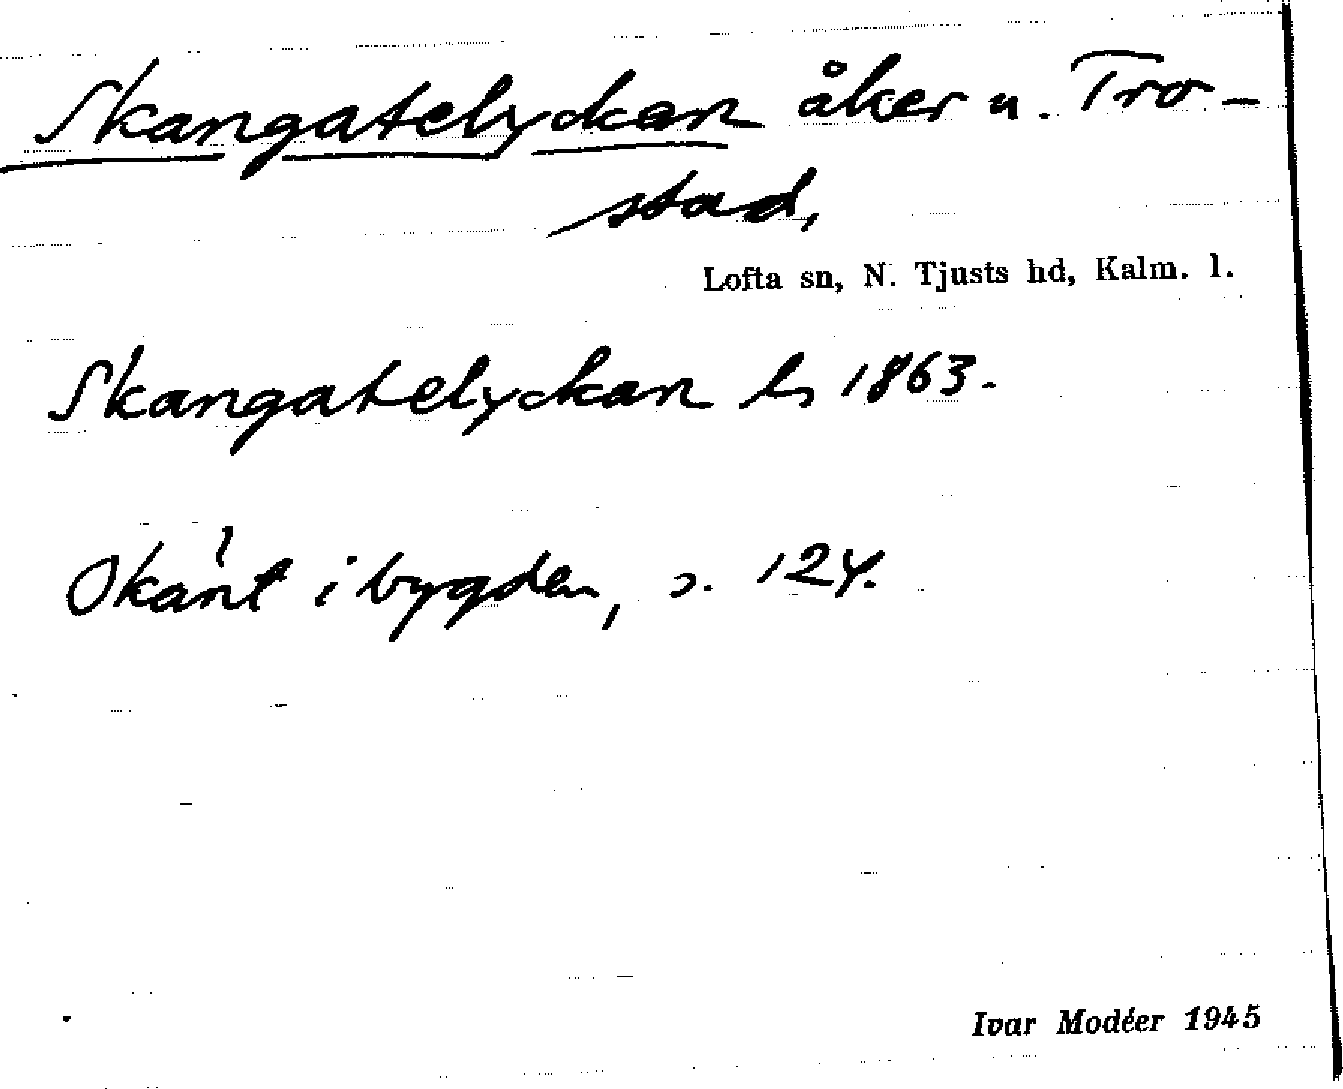 Skangatelyckan åker u. Tro-
stad,
Lofta sn, N. Tjusts hd, Kalm. l.
Skangatelyckan 1863.
Okänt i bygden, s. 124.
Ivar Modéer 1945